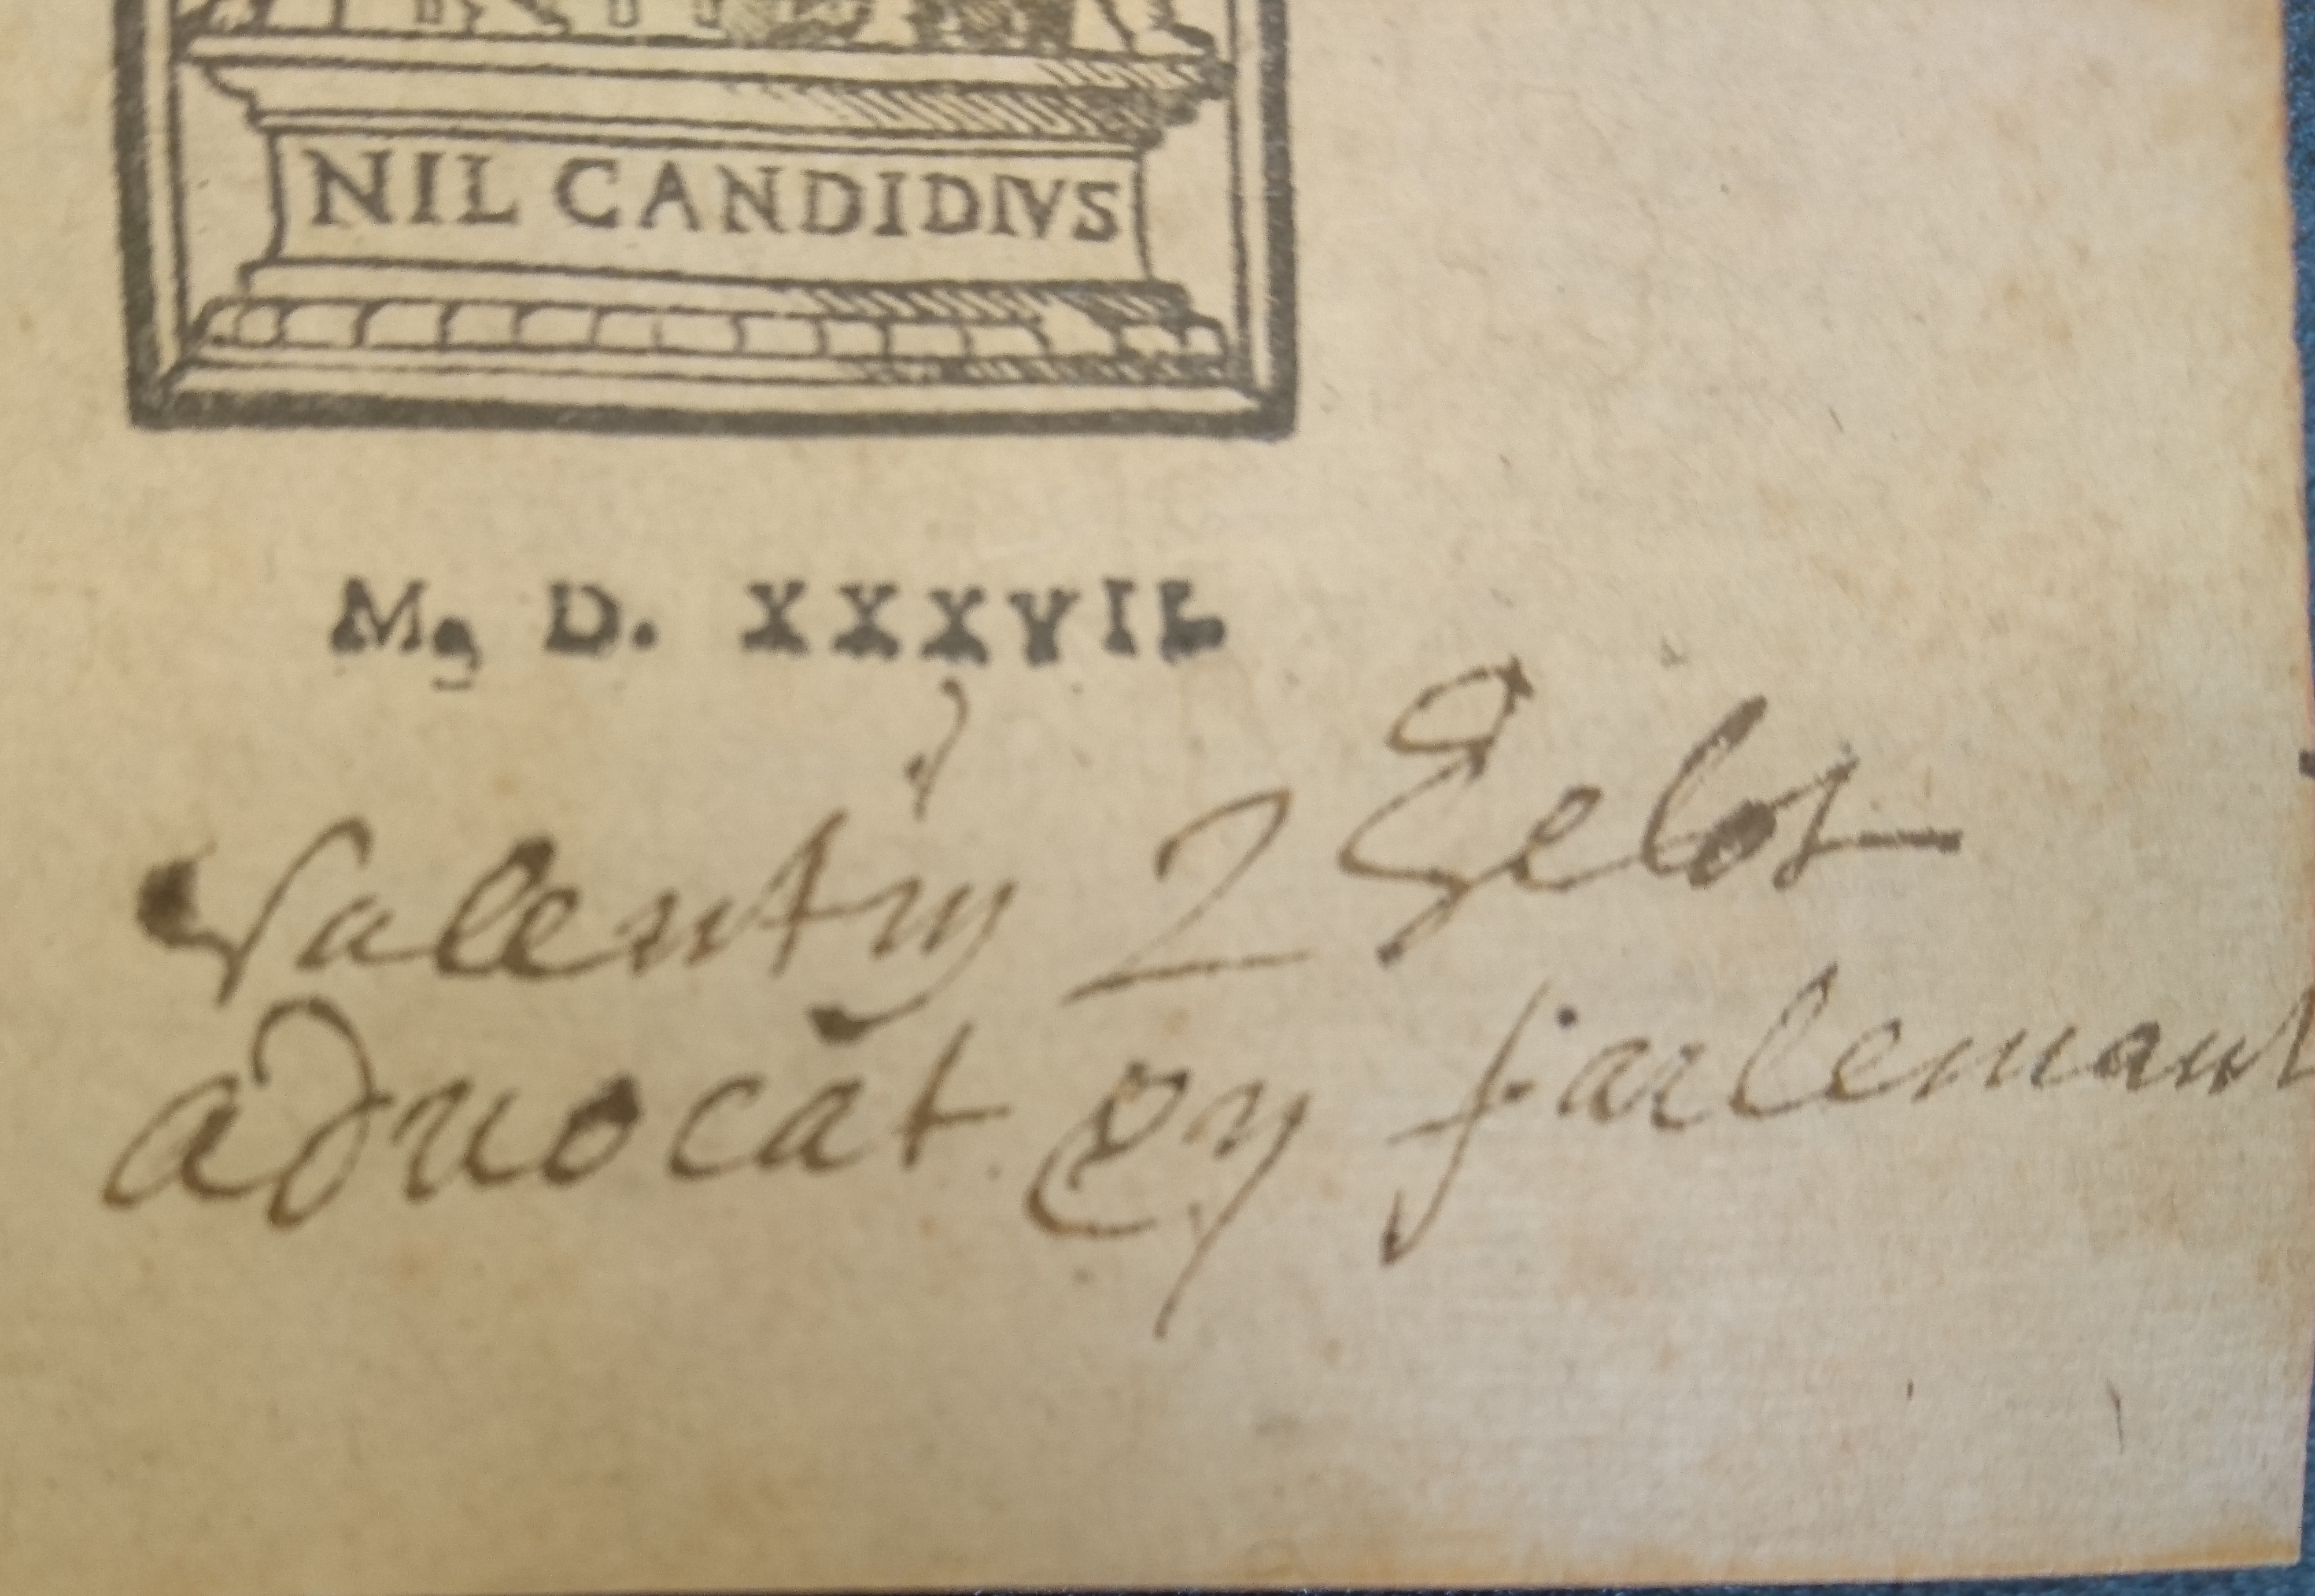 NIL CANDIDIVS
M, D. XXXVII.
Valentin 2 Gelot
aduocat En parlemant